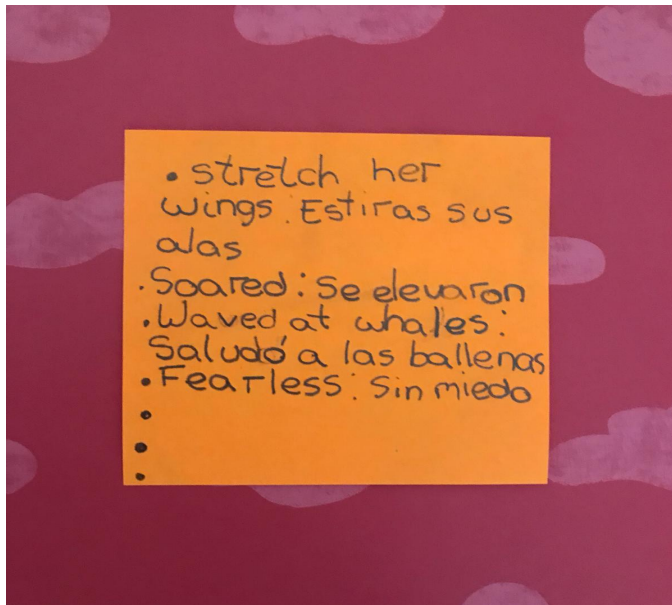 • stretch her
wings. Estiras sus
alas
• Soared: Se elevaron
• Waved at whales:
Saludó a las ballenas
• Fearless: Sin miedo
•
•
•